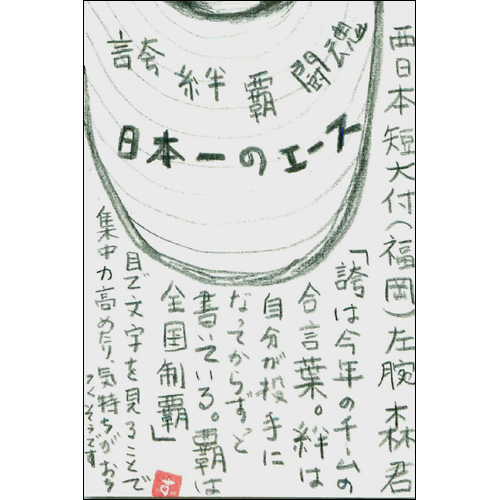 西日本短大付(福岡)左腕 森君
誇 絆 覇 闘魂
日本一のエース
「誇は今年のチームの
合言葉。絆は
自分が投手に
なってからずっと
書いている。覇は
全国制覇」
目で文字を見ることで
集中力高めたり、気持ちがおち
つくそうです
す